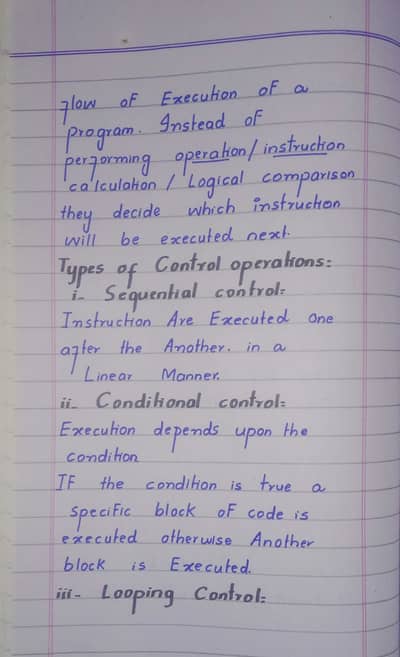 flow of Execution of a
program. Instead of
performing operation/instruction
calculation / Logical comparison
they decide which instruction
will be executed next.
Types of Control operations:
i- Sequential control:
Instruction Are Executed one
after the Another. in a
Linear Manner.
ii- Conditional control:
Execution depends upon the
condition
IF the condition is true a
specific block of code is
executed otherwise Another
block is Executed.
iii- Looping Control: